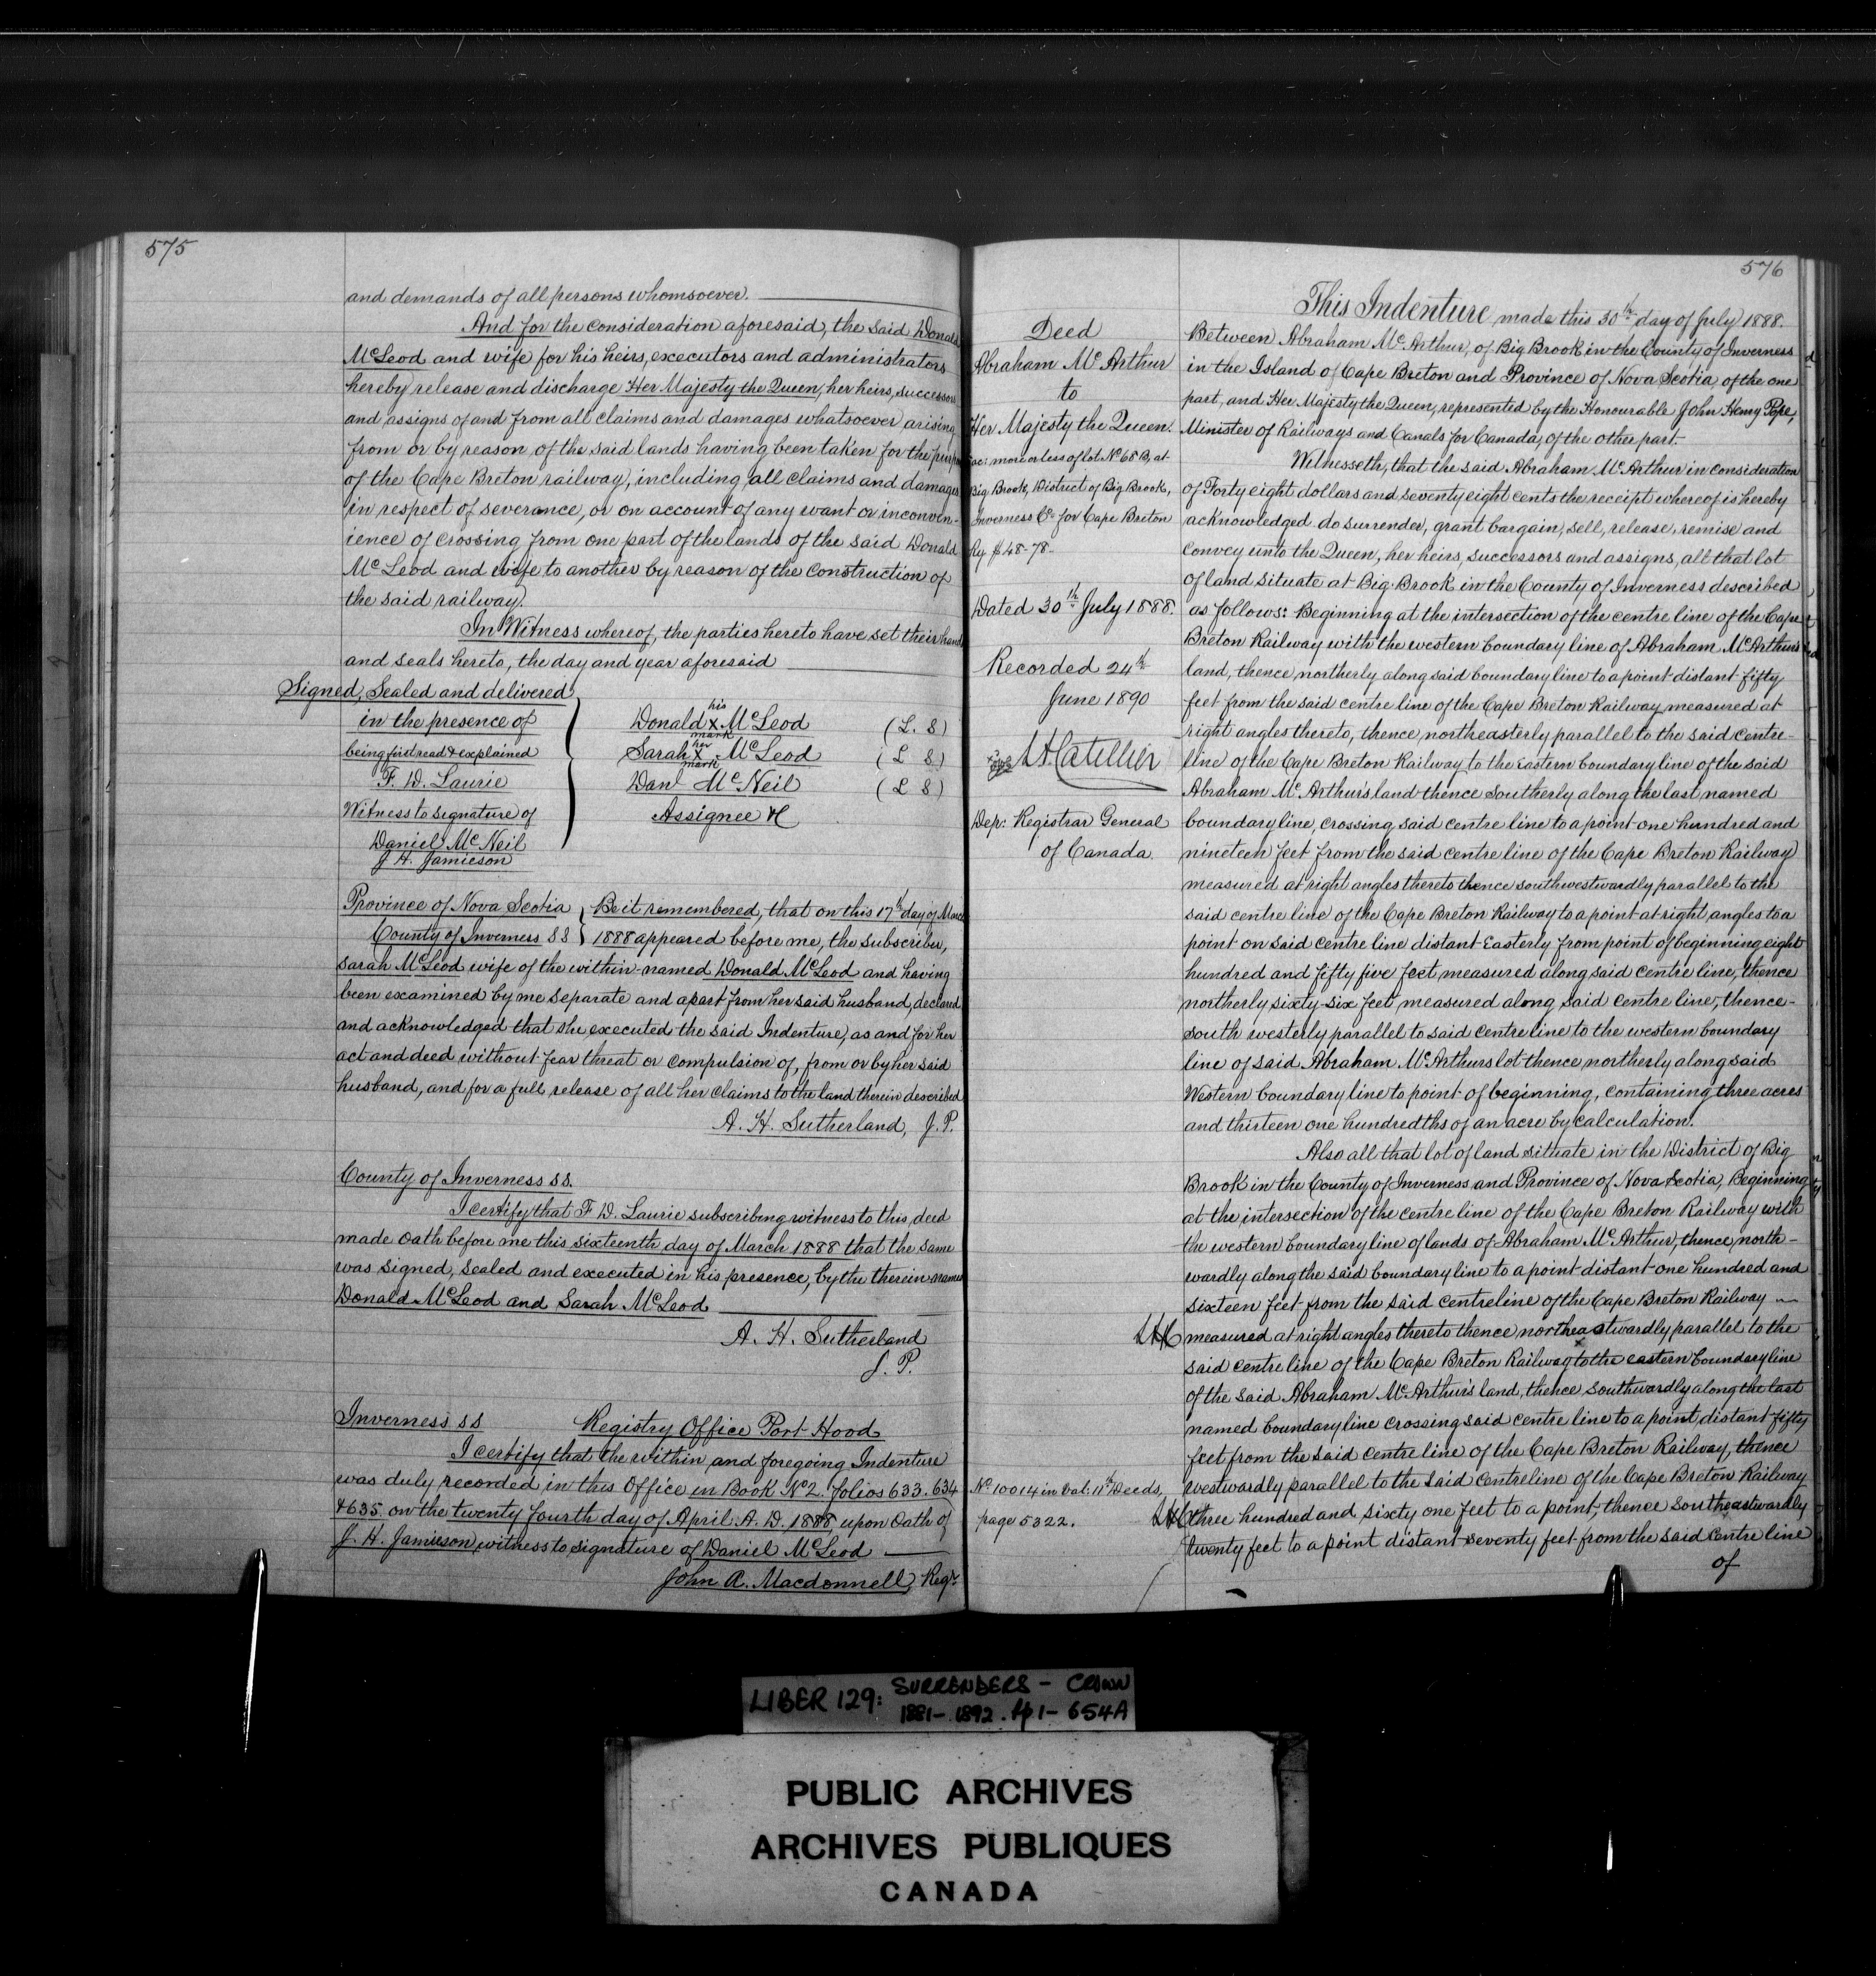 575
and demands of all persons whomsoever.
And for the consideration aforesaid, the said Donald
McLeod and wife for his heirs, executors and administrators
hereby release and discharge Her Majesty the Queen, her heirs, successors
and assigns of and from all claims and damages whatsoever arising
from or by reason of the said lands having been taken for the
of the Cape Breton railway, including all claims and damages
in respect of severance, or on account of any want or inconven-
ience of crossing from one part of the lands of the said Donald
McLeod and wife to another by reason of the construction of
the said railway.
In Witness whereof, the parties hereto have set their hands
and seals hereto, the day and year aforesaid
Signed, Sealed and delivered
in the presence of
being first read & explained
F. D. Laurie
Witness to signature of
Daniel McNeil
J. H. Jamieson
his
Donald X McLeod (L. S)
mark
her
Sarah X McLeod (L S)
mark
Danl McNeil (L S)
Assignee &c
Province of Nova Scotia } Be it remembered, that on this 17th day of March
County of Inverness SS } 1888 appeared before me, the subscriber,
Sarah McLeod wife of the within-named Donald McLeod and having
been examined by me separate and apart from her said husband, declared
and acknowledged that she executed the said Indenture, as and for her
act and deed without fear threat or compulsion of, from or by her said
husband, and for a full release of all her claims to the land therein described
A. H. Sutherland, J. P.
County of Inverness SS.
I certify that F. D. Laurie subscribing witness to this, deed
made oath before me this sixteenth day of March 1888 that the same
was signed, sealed and executed in his presence, by the therein named
Donald McLeod and Sarah McLeod
A. H. Sutherland
J. P.
Inverness SS Registry Office Port Hood
I certify that the within and foregoing Indenture
was duly recorded in this Office in Book No 2. folios 633. 634
& 635 on the twenty fourth day of April A. D. 1888, upon Oath of
J. H. Jamieson, witness to signature of Daniel McLeod
John A. Macdonnell, Regr
576
Deed
Abraham McArthur
to
Her Majesty the Queen.
ac: more or less of lot No 68 B, at
Big Brook, District of Big Brook,
Inverness Co for Cape Breton
Ry $48-78-
Dated 30th July 1888.
Recorded 24th
June 1890
L. A. Catellier
Dep: Registrar General
of Canada.
No 10014 in Vol: 11th Deeds,
page 5322.
This Indenture made this 30th day of July 1888.
Between Abraham McArthur, of Big Brook in the County of Inverness
in the Island of Cape Breton and Province of Nova Scotia, of the one
part, and Her Majesty the Queen, represented by the Honourable John Henry Pope,
Minister of Railways and Canals for Canada, of the other part-
Witnesseth, that the said Abraham McArthur in consideration
of Forty eight dollars and seventy eight cents the receipt whereof is hereby
acknowledged do surrender, grant bargain, sell, release, remise and
convey unto the Queen, her heirs, successors and assigns, all that lot
of land situate at Big Brook in the County of Inverness described
as follows: Beginning at the intersection of the centre line of the Cape
Breton Railway with the western boundary line of Abraham McArthurs
land, thence northerly along said boundary line to a point distant fifty
feet from the said centre line of the Cape Breton Railway measured at
right angles thereto, thence northeasterly parallel to the said centre-
line of the Cape Breton Railway to the Eastern boundary line of the said
Abraham McArthur's land thence southerly along the last named
boundary line, crossing said centre line to a point one hundred and
nineteen feet from the said centre line of the Cape Breton Railway
measured at right angles thereto thence southwestwardly parallel to the
said centre line of the Cape Breton Railway to a point at right angles to a
point on said centre line distant Easterly from point of beginning eight
hundred and fifty five feet measured along said centre line, thence
northerly sixty-six feet, measured along said centre line, thence-
south westerly parallel to said centre line to the western boundary
line of said Abraham McArthurs lot thence northerly along said
Western boundary line to point of beginning, containing three acres
and thirteen one hundredths of an acre by calculation.
Also all that lot of land situate in the District of Big
Brook in the County of Inverness and Province of Nova Scotia, Beginning
at the intersection of the centre line of the Cape Breton Railway with
the western boundary line of lands of Abraham McArthur, thence north-
wardly along the said boundary line to a point distant one hundred and
sixteen feet from the said centreline of the Cape Breton Railway
LAC measured at right angles thereto thence northeastwardly parallel to the
said centre line of the Cape Breton Railway to the eastern boundary line
of the said Abraham McArthur's land, thence southwardly along the last
named boundary line crossing said centre line to a point, distant fifty
feet from the said centre line of the Cape Breton Railway, thence
westwardly parallel to the said centreline of the Cape Breton Railway
LAC three hundred and sixty one feet to a point, thence southeastwardly
twenty feet to a point distant seventy feet from the said centre line
of
LIBER 129: SURRENDERS - CROWN
1881-1892. pp 1- 654A
PUBLIC ARCHIVES
ARCHIVES PUBLIQUES
CANADA